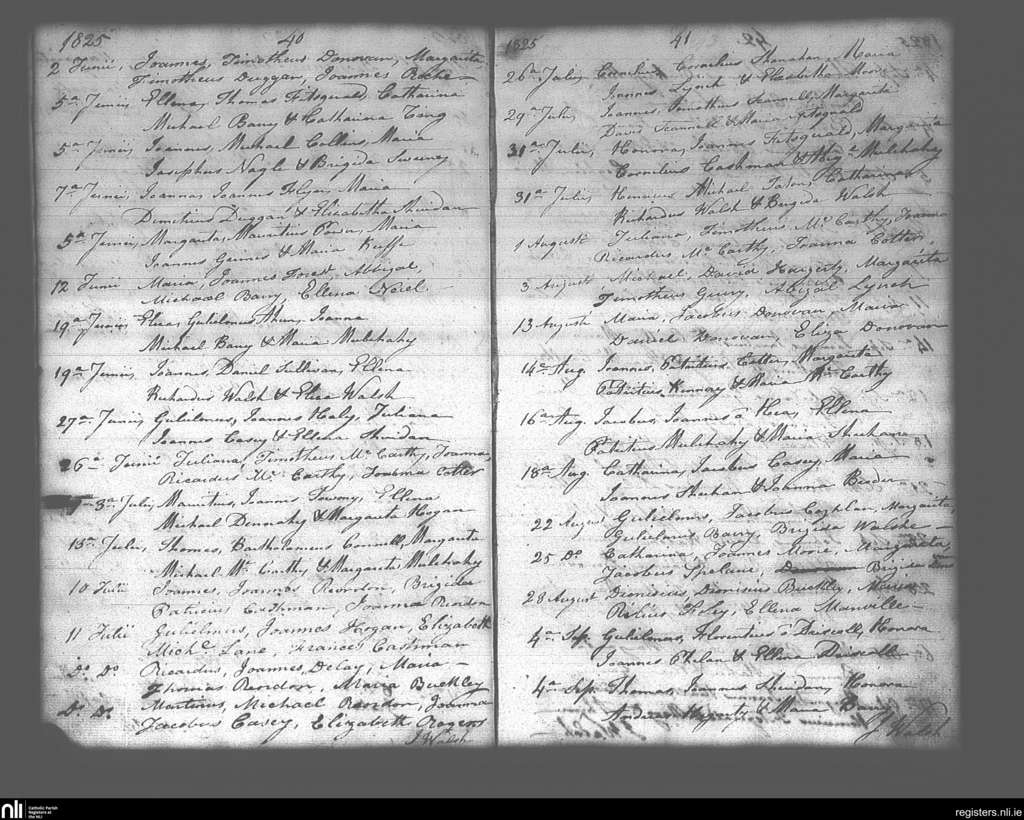 1825 40
2 Junii, Joannes, Timotheus Donovan, Margarita
Timotheus Duggan, Joannes Roche
5a Junii, Ellena, Thomas Fitsgerald, Catharina
Michael Barry & Catharina Long
5a Junii, Joannes, Michael Collins, Maria
Josephus Nagle & Brigida Sweeny
7a Junii, Joanna, Joannes Flyn, Maria
Demetrius Duggan & Elizabetha Sheedan
5a Junii, Margarita, Mauritius Maria
Joannes & Maria Keeffe
12 Junii Maria, Joannes Forest, Abbigal,
Michael Barry, Ellena
19a Junii, Eliza, Gulielmus Ahern, Joanna
Michael Barry & Maria Mulchahy
19a Junii, Joannes, Daniel Sullivan, Ellena
Richardus Walsh & Eliza Walsh
27a Junii, Gulielmus, Joannes Haly, Juliana
Joannes Casey & Ellena Sheedan
26a Junii Juliana, Timotheus Mc Carthy, Joanna,
Ricardus Mc Carthy, Joanna Cotter
3a Julii, Mauritius, Joannes Ellena
Michael Dennahy & Margarita Hogan
15a Julii, Thomas, Bartholomeus Connell, Margarita
Michael Mc Carthy, & Margarita Mulchahy
10 Julii Joannes, Joannes Reordon, Brigida
Patricius Cashman, Joanna Reordon
11 Julii Gulielmus, Joannes Hogan, Elizabeth
Michl. Lane, Frances Cashman
Do. Do. Ricardus, Joannes Delay, Maria
Thomas Reordon, Maria Buckley
Do. Do. Martinus, Michael Reordon, Joanna
Jacobus Casey, Elizabeth Rogers
J Walsh
1825 41
26a Julii, Cornelius, Cornelius Shanahan, Maria
Joannes Lynch & Elizabetha
29a Julii, Joannes, Timotheus Scannell, Margarita
David Scannell & Maria Fitsgerald
31a Julii, Honora, Joannes Fitsgerald, Margarita
Cornelius Cashman & Mulchahy
31a Julii, Michael Catharina
Richardus Walsh & Brigida Walsh
1 August Juliana, Timotheus Mc Carthy, Joanna
Ricardus Mc Carthy, Joanna Cotter,
3 August, Michael, David Hagerty, Margarita
Timotheus Abigal Lynch
13 August Maria, Jacobus Donovan, Maria
Daniel Donovan, Eliza Donovan
14a Aug. Joannes, Patritius Cotter, Margarita
Patritius & Maria Mc Carthy
16a Aug. Jacobus, Joannes ó Hea, Ellena
Patritius Mulchahy & Maria Sheehan
18a Aug Catharina, Jacobus Casey, Maria
Joannes Sheehan & Joanna
22 August Gulielmus, Jacobus Coghlan, Margarita,
Gulielmus Barry Brigida Walshe
25 Do. Catharina, Joannes Moore, Margarita,
Jacobus Spelane, Brigida
28 August Dionisius, Dionisius Buckley, Maria
Foley, Ellena Manville
4a Sep. Gulielmus, Florentius ó Driscoll, Honora
Joannes Phelan & Ellena Driscoll
4a Sep. Thomas, Joannes Sheedan, Honora
Andreas Hegerty & Maria Barry
J Walsh
nli Catholic Parish
Registers at
the NLI
registers.nli.ie